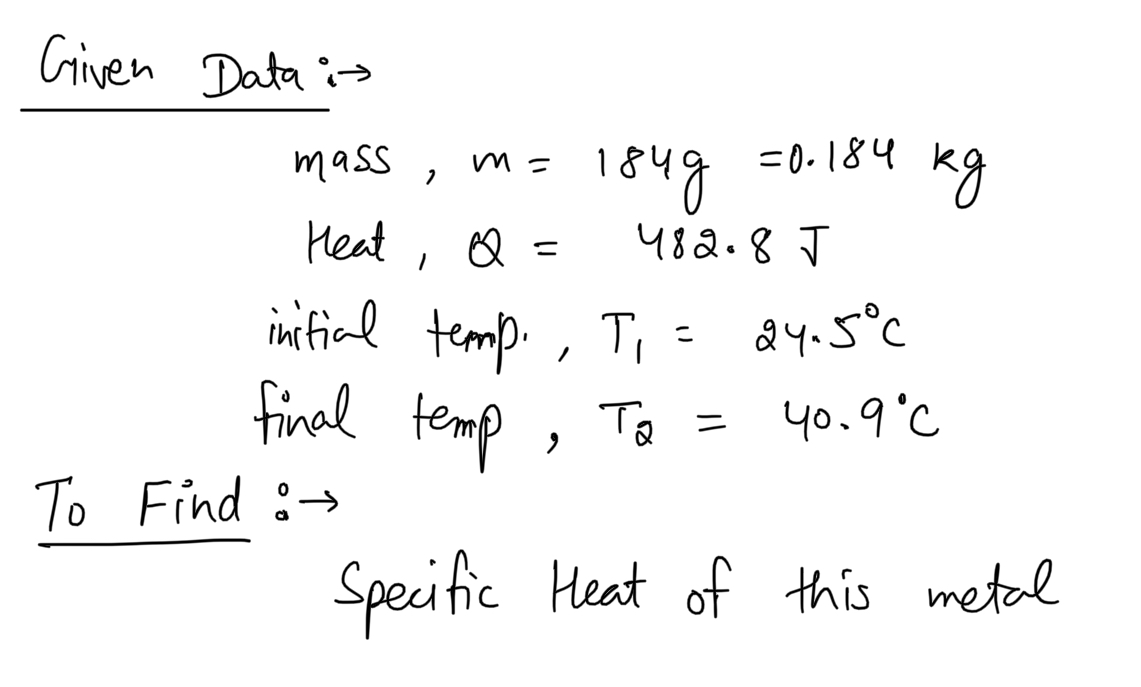 Given Data :→
mass , m = 184g = 0.184 kg
Heat , Q = 482.8 J
initial temp. , T₁ = 24.5°C
final temp , T₂ = 40.9°C
To Find :→
Specific Heat of this metal